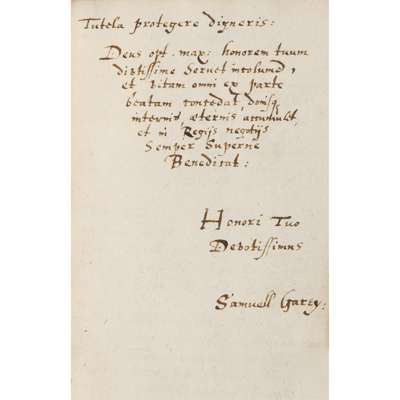 Tutela protegere digneris:
Deus opt. max: honorem tuum
diutissime Servet incolumē,
et vitam omni ex parte
beatam concedat, donisq
internis, æternis accumulet,
et in Regijs negotijs
Semper Superne
Benedicat:
Honori Tuo
Devotissimus
Samuell Garey: